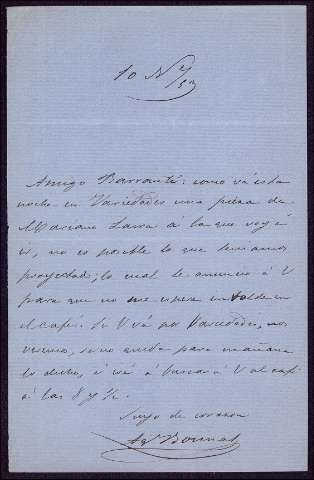 10 N
Amigo Barrantes: como vá esta
noche en Variedades una pieza de
Mariano Larra á la que voy á
ir, no es posible lo que teniamos
proyectado; lo cual le anuncio á V
para que no me espere en balde en
el café. Si V vá por Variedades, nos
veremos, si no queda para mañana
lo dicho, é iré á buscar á V al café
á las 8 y ½.
Suyo de corazon